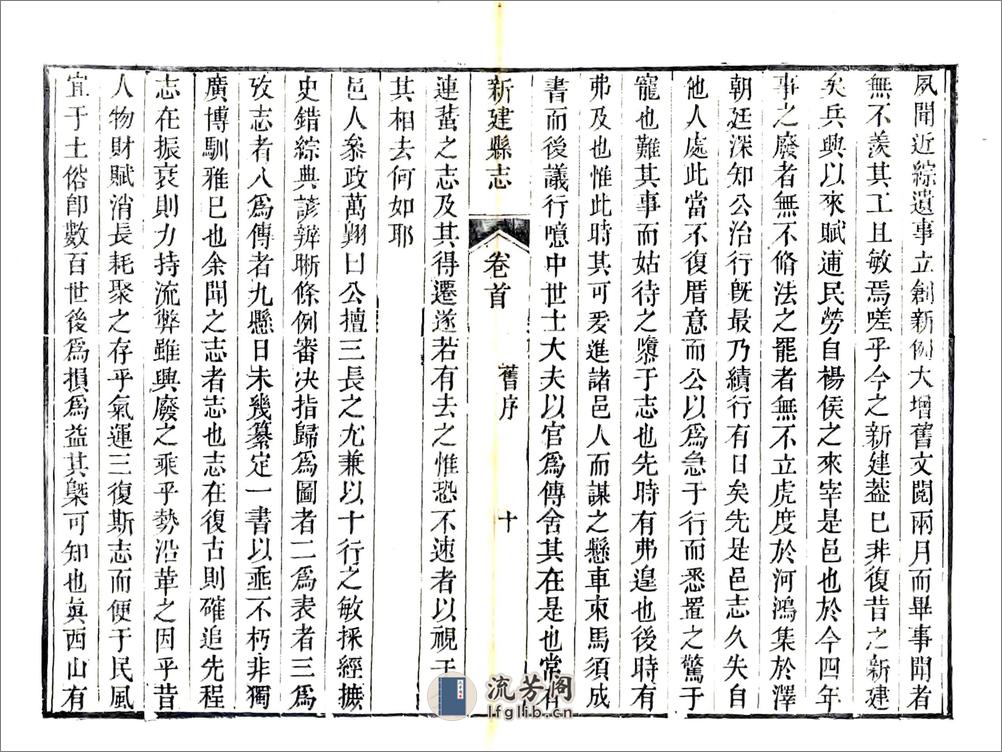 夙聞近綜遺事立創新例大增舊文閱兩月而畢事聞者
無不羨其工且敏焉嗟乎今之新建葢已非復昔之新建
矣兵興以來賦逋民勞自楊侯之來宰是邑也於今四年
事之廢者無不脩法之罷者無不立虎度於河鴻集於澤
朝廷深知公治行旣最乃績行有日矣先是邑志久失自
他人處此當不復厝意而公以爲急于行而悉置之驚于
寵也難其事而姑待之隳于志也先時有弗遑也後時有
弗及也惟此時其可爰進諸邑人而謀之懸車束馬須成
書而後議行噫中世士大夫以官爲傳舍其在是也常有
新建縣志 卷首 舊序 十
連蜚之志及其得遷遂若有去之惟恐不速者以視于
其相去何如耶
邑人叅政萬舞曰公擅三長之尤兼以十行之敏採經摭
史錯綜典諺辨晰條例審决指歸爲圖者二爲表者三爲
攷志者八爲傳者九懸日未幾纂定一書以垂不朽非獨
廣博馴雅已也余聞之志者志也志在復古則確追先程
志在振衰則力持流弊雖興廢之乘乎勢沿革之因乎昔
人物財賦消長耗聚之存乎氣運三復斯志而便于民風
宜于土俗卽數百世後爲損爲益其槩可知也眞西山有
流芳閣
lfglib.cn